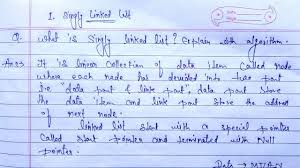 I. Singly Linked list
Q. What is Singly linked list? Explain with algorithm.
Ans:> It is linear collection of data item called node
where each node has devided into two part
i.e "data part & link part", data part store
the data item and link part store the address
of next node.
linked list start with a special pointer
called start pointer and terminated with Null
pointer.
Data →